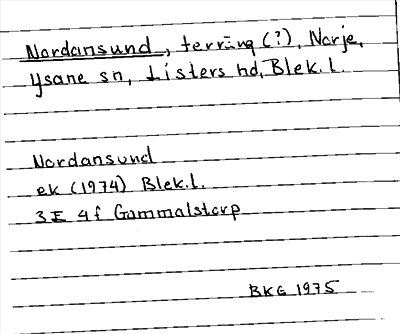 Nordansund, terräng (?), Norje,
Ysane sn, Listers hd, Blek. l.
Nordansund
ek (1974) Blek. l.
3E 4f Gammalstorp
BKG 1975